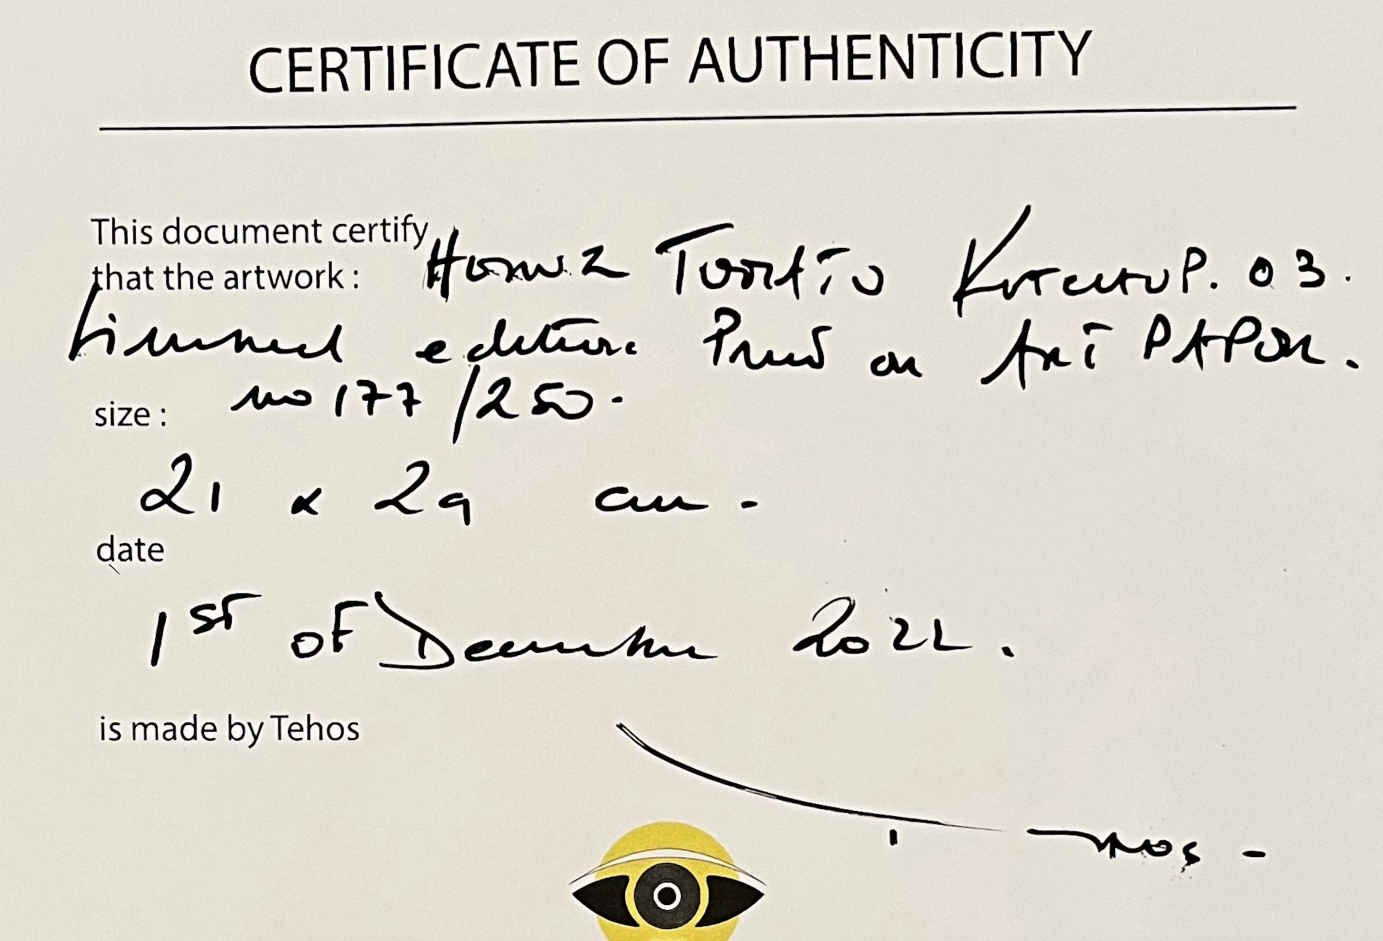 CERTIFICATE OF AUTHENTICITY
This document certify
that the artwork : P. 03.
Limited edition Print on Art PAPER.
no 177/250.
size :
21 x 29 cm.
date
1st of December 2022.
is made by Tehos
Tehos